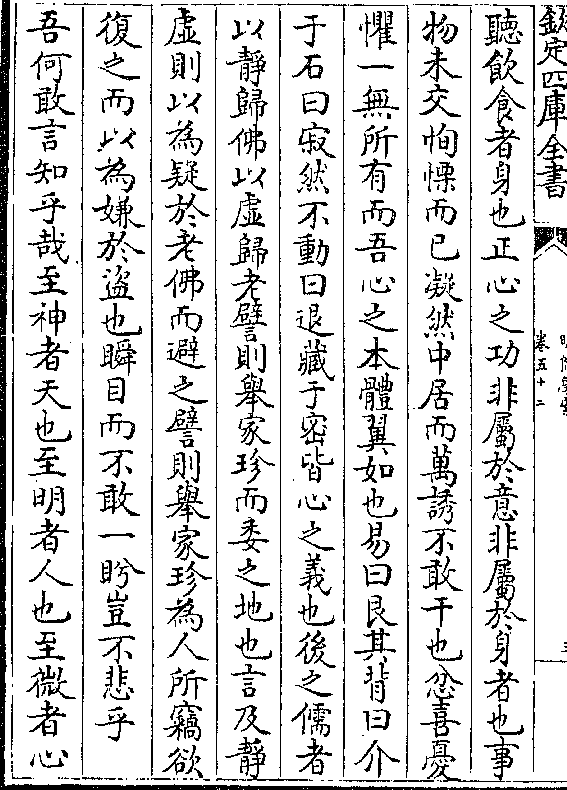 欽定四庫全書
卷五十二
聽飲食者身也正心之功非屬於意非屬於身者也事
物未交恂慄而已凝然中居而萬誘不敢干也忿喜憂
懼一無所有而吾心之本體翼如也易曰艮其背曰介
于石曰寂然不動曰退藏于密皆心之義也後之儒者
以靜歸佛以虛歸老譬則舉家珍而委之地也言及靜
虛則以為疑於老佛而避之譬則舉家珍為人所竊欲
復之而以為嫌於盜也瞬目而不敢一盻豈不悲乎
吾何敢言知乎哉至神者天也至明者人也至微者心